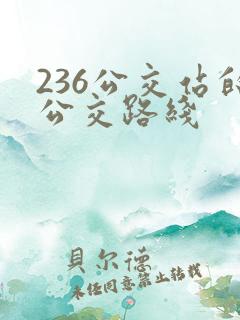 236公交佔的
公交路綫
貝尔德
未经同意禁止转载